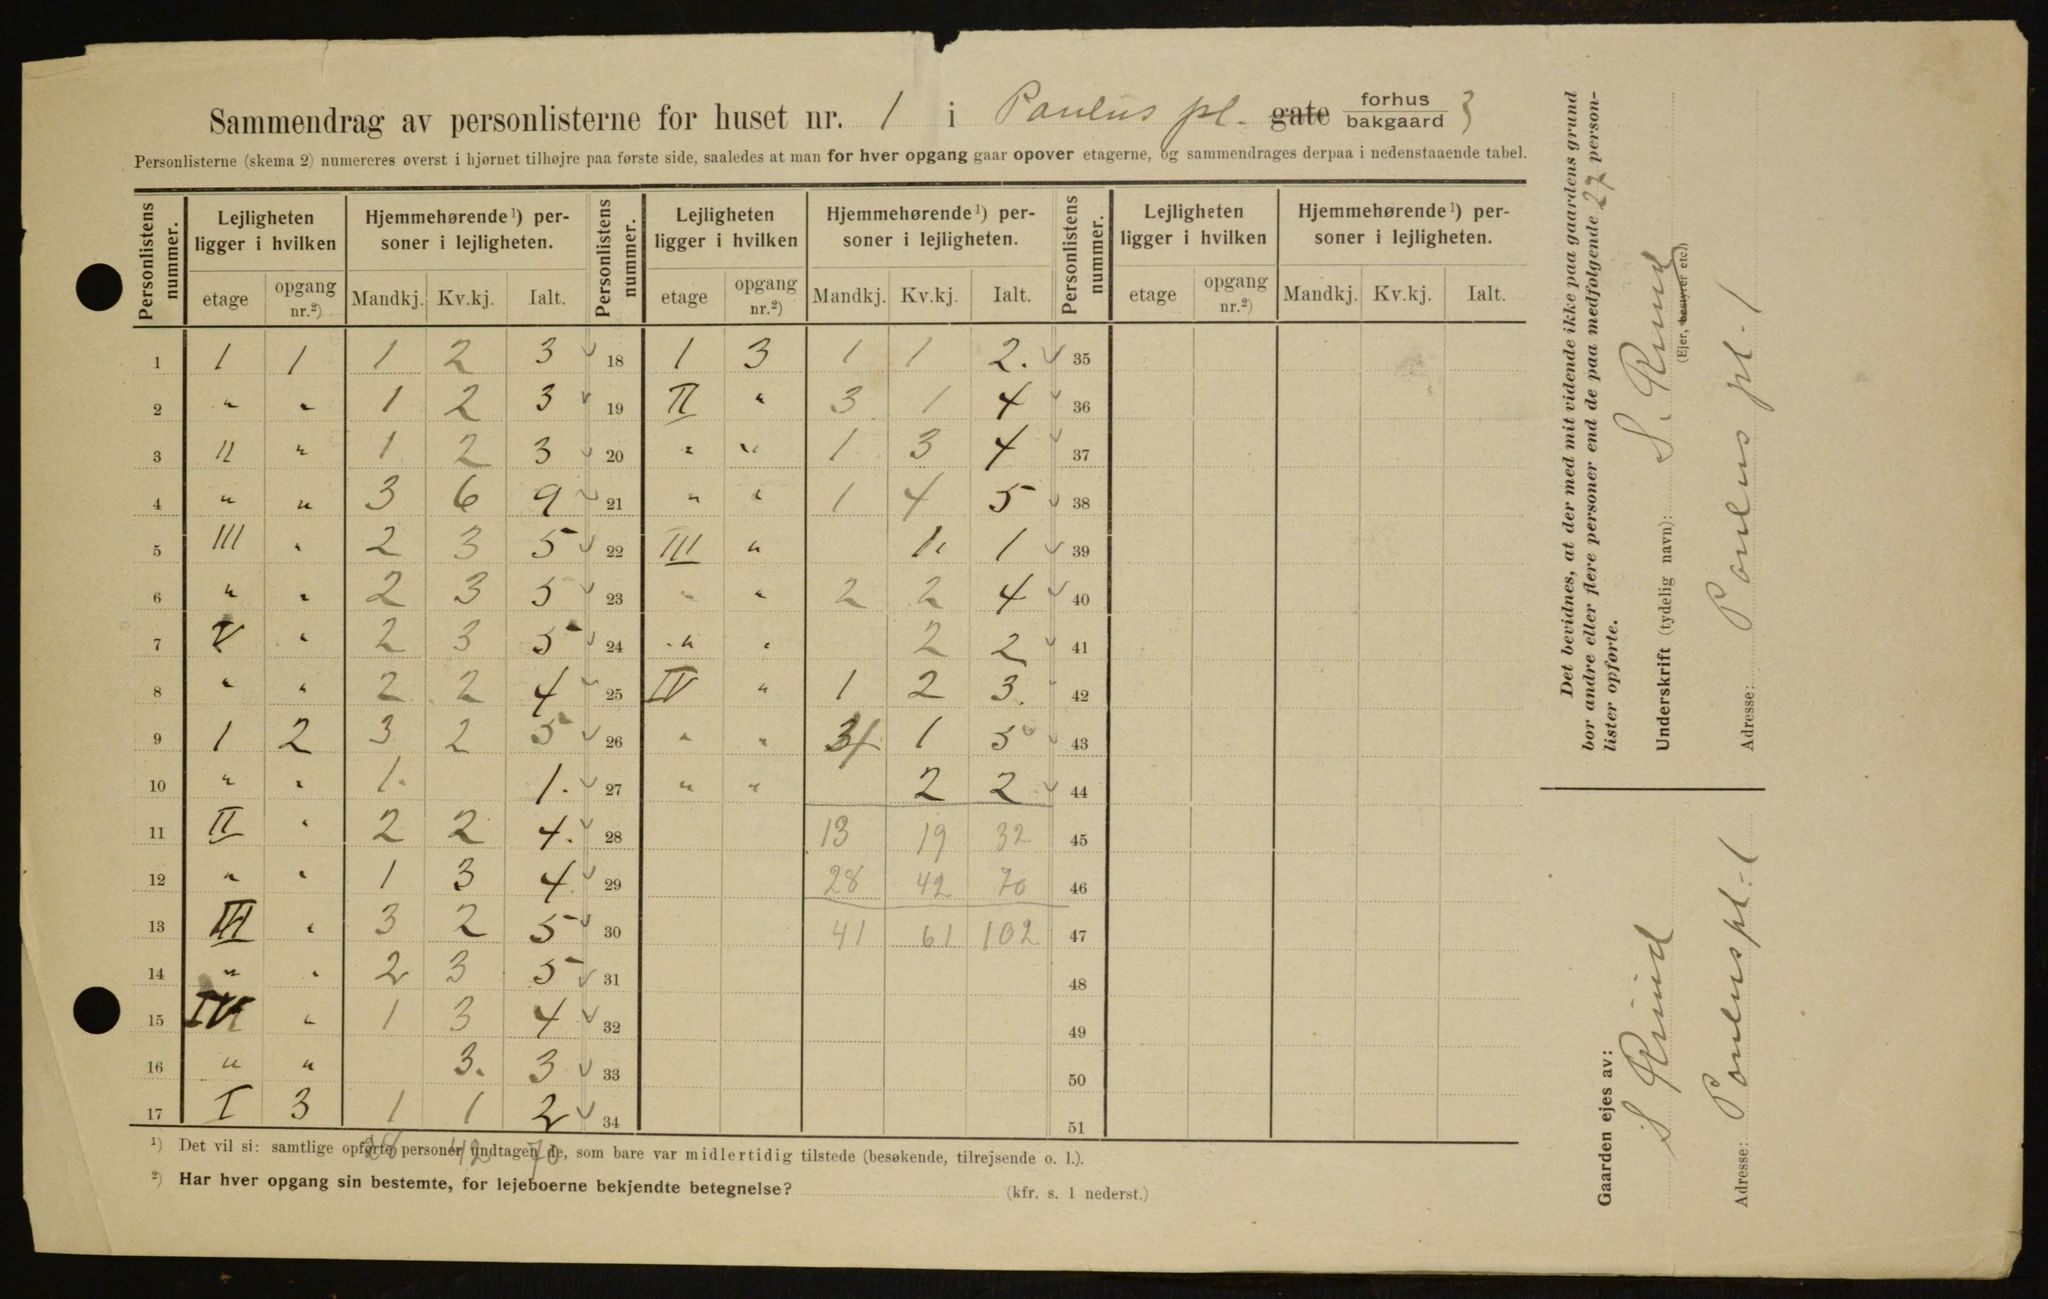 Sammendrag av personlisterne for huset nr. 1 i Paulus pl. gate forhus bakgaard 3
Personlisterne (skema 2) numereres øverst i hjørnet tilhøjre paa første side, saaledes at man for hver opgang gaar opover etagerne, og sammendrages derpaa i nedenstaaende tabel.
Personlistens nummer. Lejligheten ligger i hvilken Hjemmehørende ¹) personer i lejligheten. Personlistens nummer. Lejligheten ligger i hvilken Hjemmehørende ¹) personer i lejligheten. Personlistens nummer. Lejligheten ligger i hvilken Hjemmehørende ¹) personer i lejligheten.
etage opgang nr.²) Mandkj. Kv.kj. Ialt. etage opgang nr.²) Mandkj. Kv.kj. Ialt. etage opgang nr.²) Mandkj. Kv.kj. Ialt.
1 1 1 1 2 3 18 1 3 1 1 2. 35
2 " " 1 2 3 19 II " 3 1 4 36
3 II " 1 2 3 20 " " 1 3 4 37
4 " " 3 6 9 21 " " 1 4 5 38
5 III " 2 3 5 22 III " 1 1 39
6 " " 2 3 5 23 " " 2 2 4 40
7 V " 2 3 5 24 " " 2 2 41
8 " " 2 2 4 25 IV " 1 2 3. 42
9 1 2 3 2 5 26 " " 4 1 5 43
10 " " 1. 1. 27 " " 2 2 44
11 II " 2 2 4. 28 13 19 32 45
12 " " 1 3 4. 29 28 42 70 46
13 III " 3 2 5 30 41 61 102 47
14 " " 2 3 5 31 48
15 IV " 1 3 4 32 49
16 " " 3. 3 33 50
17 I 3 1 1 2 34 51
28 42 70
¹) Det vil si: samtlige opførte personer undtagen de, som bare var midlertidig tilstede (besøkende, tilrejsende o. l.).
²) Har hver opgang sin bestemte, for lejeboerne bekjendte betegnelse? (kfr. s. 1 nederst.)
Det bevidnes, at der med mit vidende ikke paa gaardens grund
bor andre eller flere personer end de paa medfølgende 27 person-
lister opførte.
Underskrift (tydelig navn): S. Ruud
(Ejer, bestyrer etc.)
Adresse: Paulus pl. 1
Gaarden ejes av:
S Ruud
Adresse: Paulus pl. 1